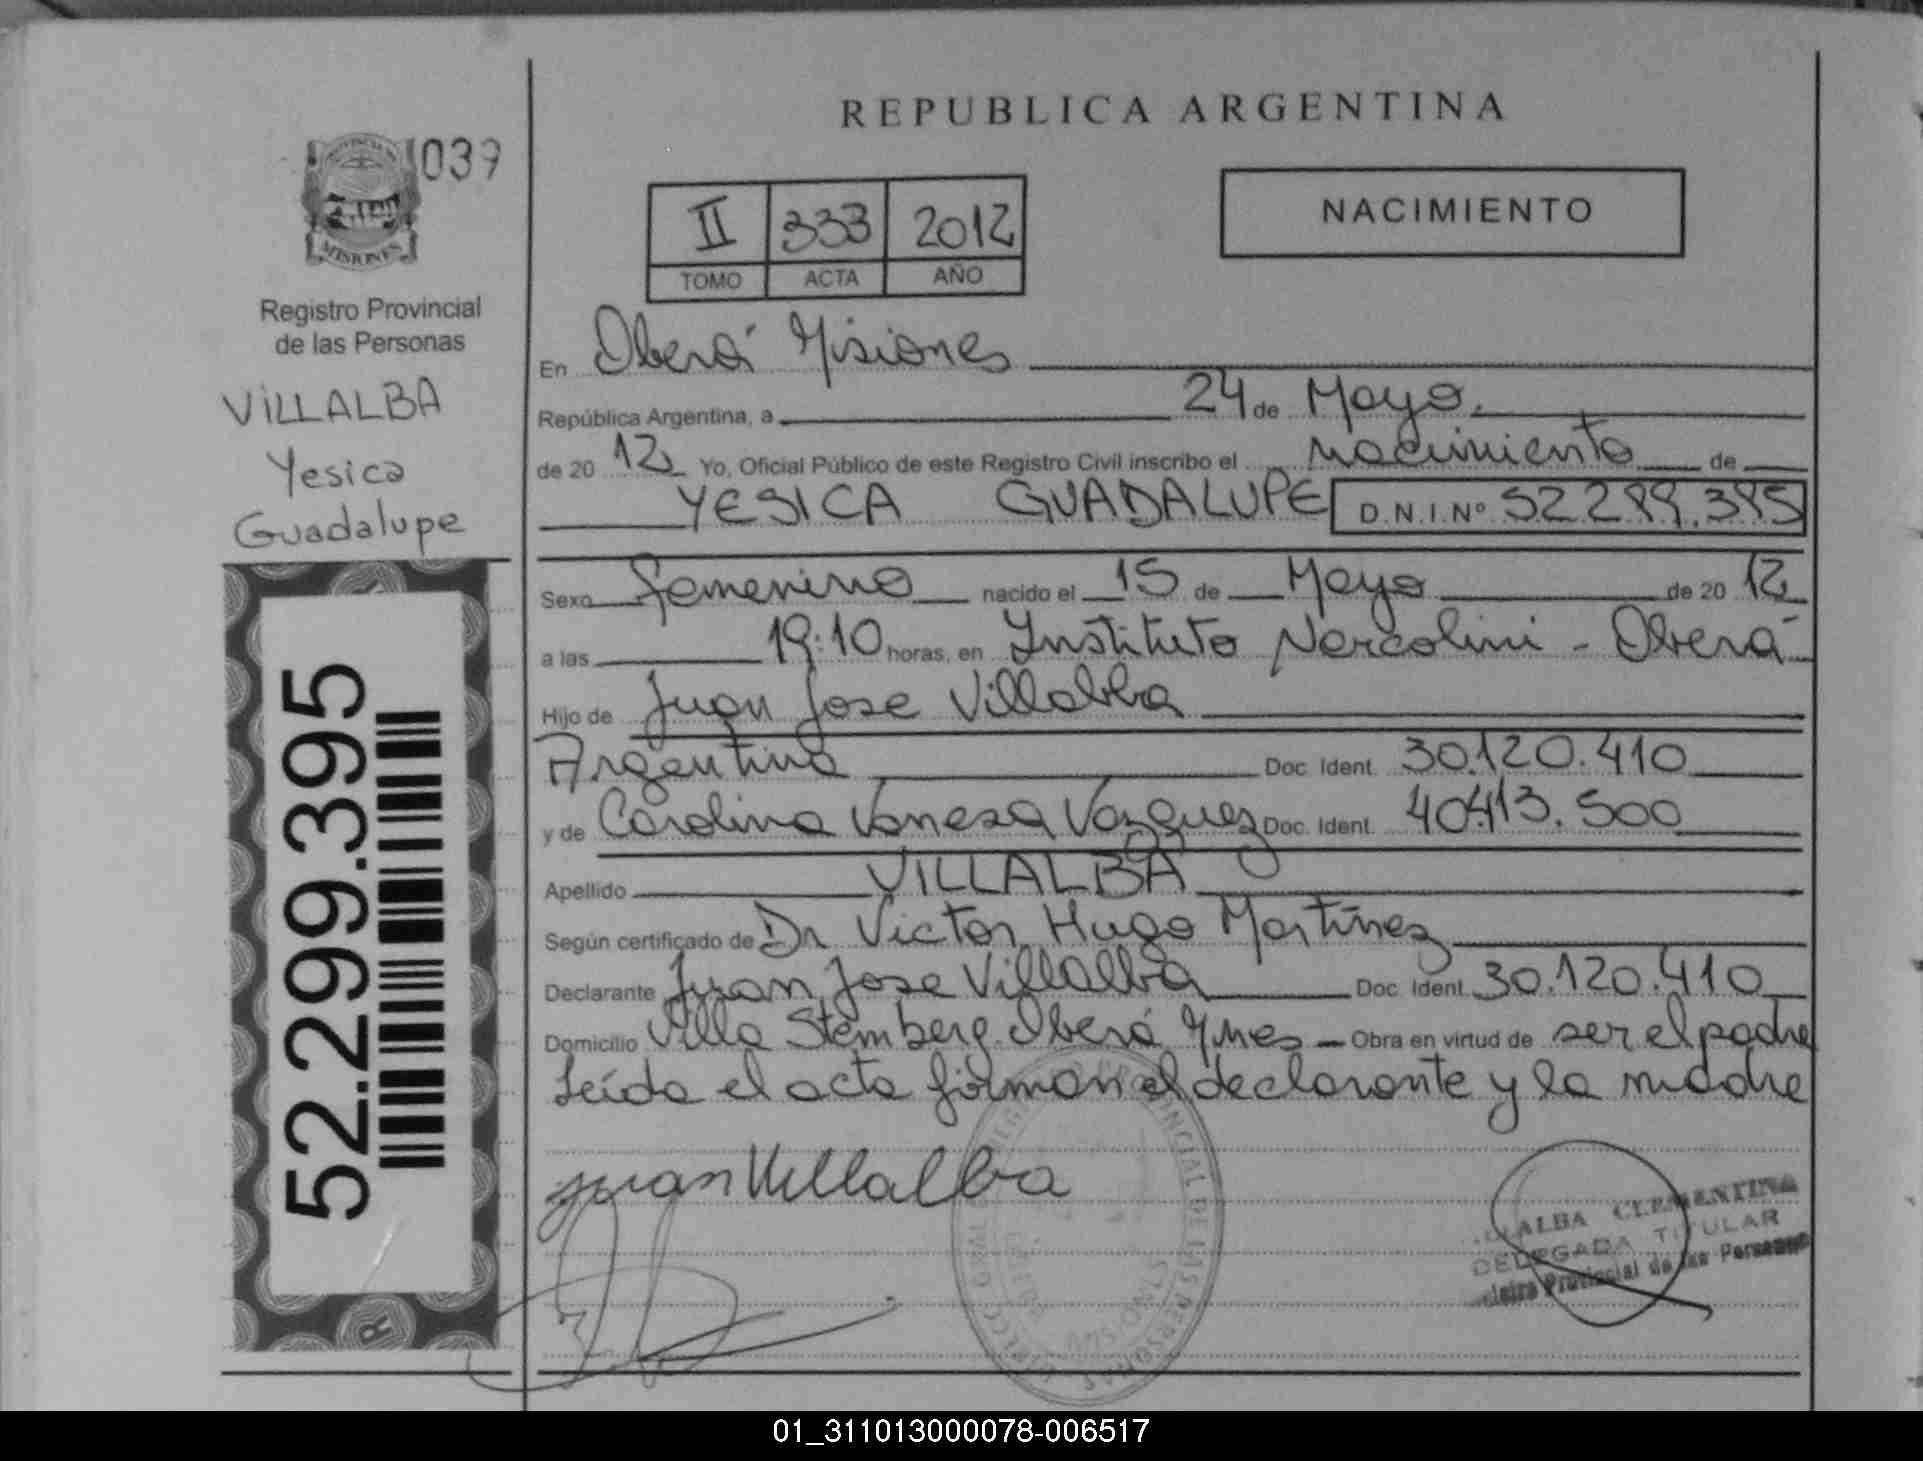 REPUBLICA ARGENTINA
039
II 333 2012
TOMO ACTA AÑO
NACIMIENTO
MISIONES
Registro Provincial
de las Personas
VILLALBA
Yesica
Guadalupe
52.299.395
R
En Oberá Misiones
República Argentina, a 24 de Mayo.
de 20 12 Yo, Oficial Público de este Registro Civil inscribo el nacimiento de
YESICA GUADALUPE D.N.I.Nº 52.299.395
Sexo femenino nacido el 15 de Mayo de 20 12
a las 19:10 horas, en Instituto Nercolini - Oberá
Hijo de Juan Jose Villalba
Argentina Doc. Ident. 30.120.410
y de Carolina Vanesa Vazquez Doc. Ident. 40.413.500
Apellido VILLALBA
Según certificado de Dr Victor Hugo Martínez
Declarante Juan Jose Villalba Doc. Ident. 30.120.410
Domicilio Villa Stemberg Oberá Mnes Obra en virtud de ser el padre
Leída el acta firman el declarante y la madre
Juan Villalba
CLEMENTINA
DELEGADA TITULAR
Provincial de las Personas
PROVINCIAL DE LAS PERSONAS
MISIONES
01_311013000078-006517